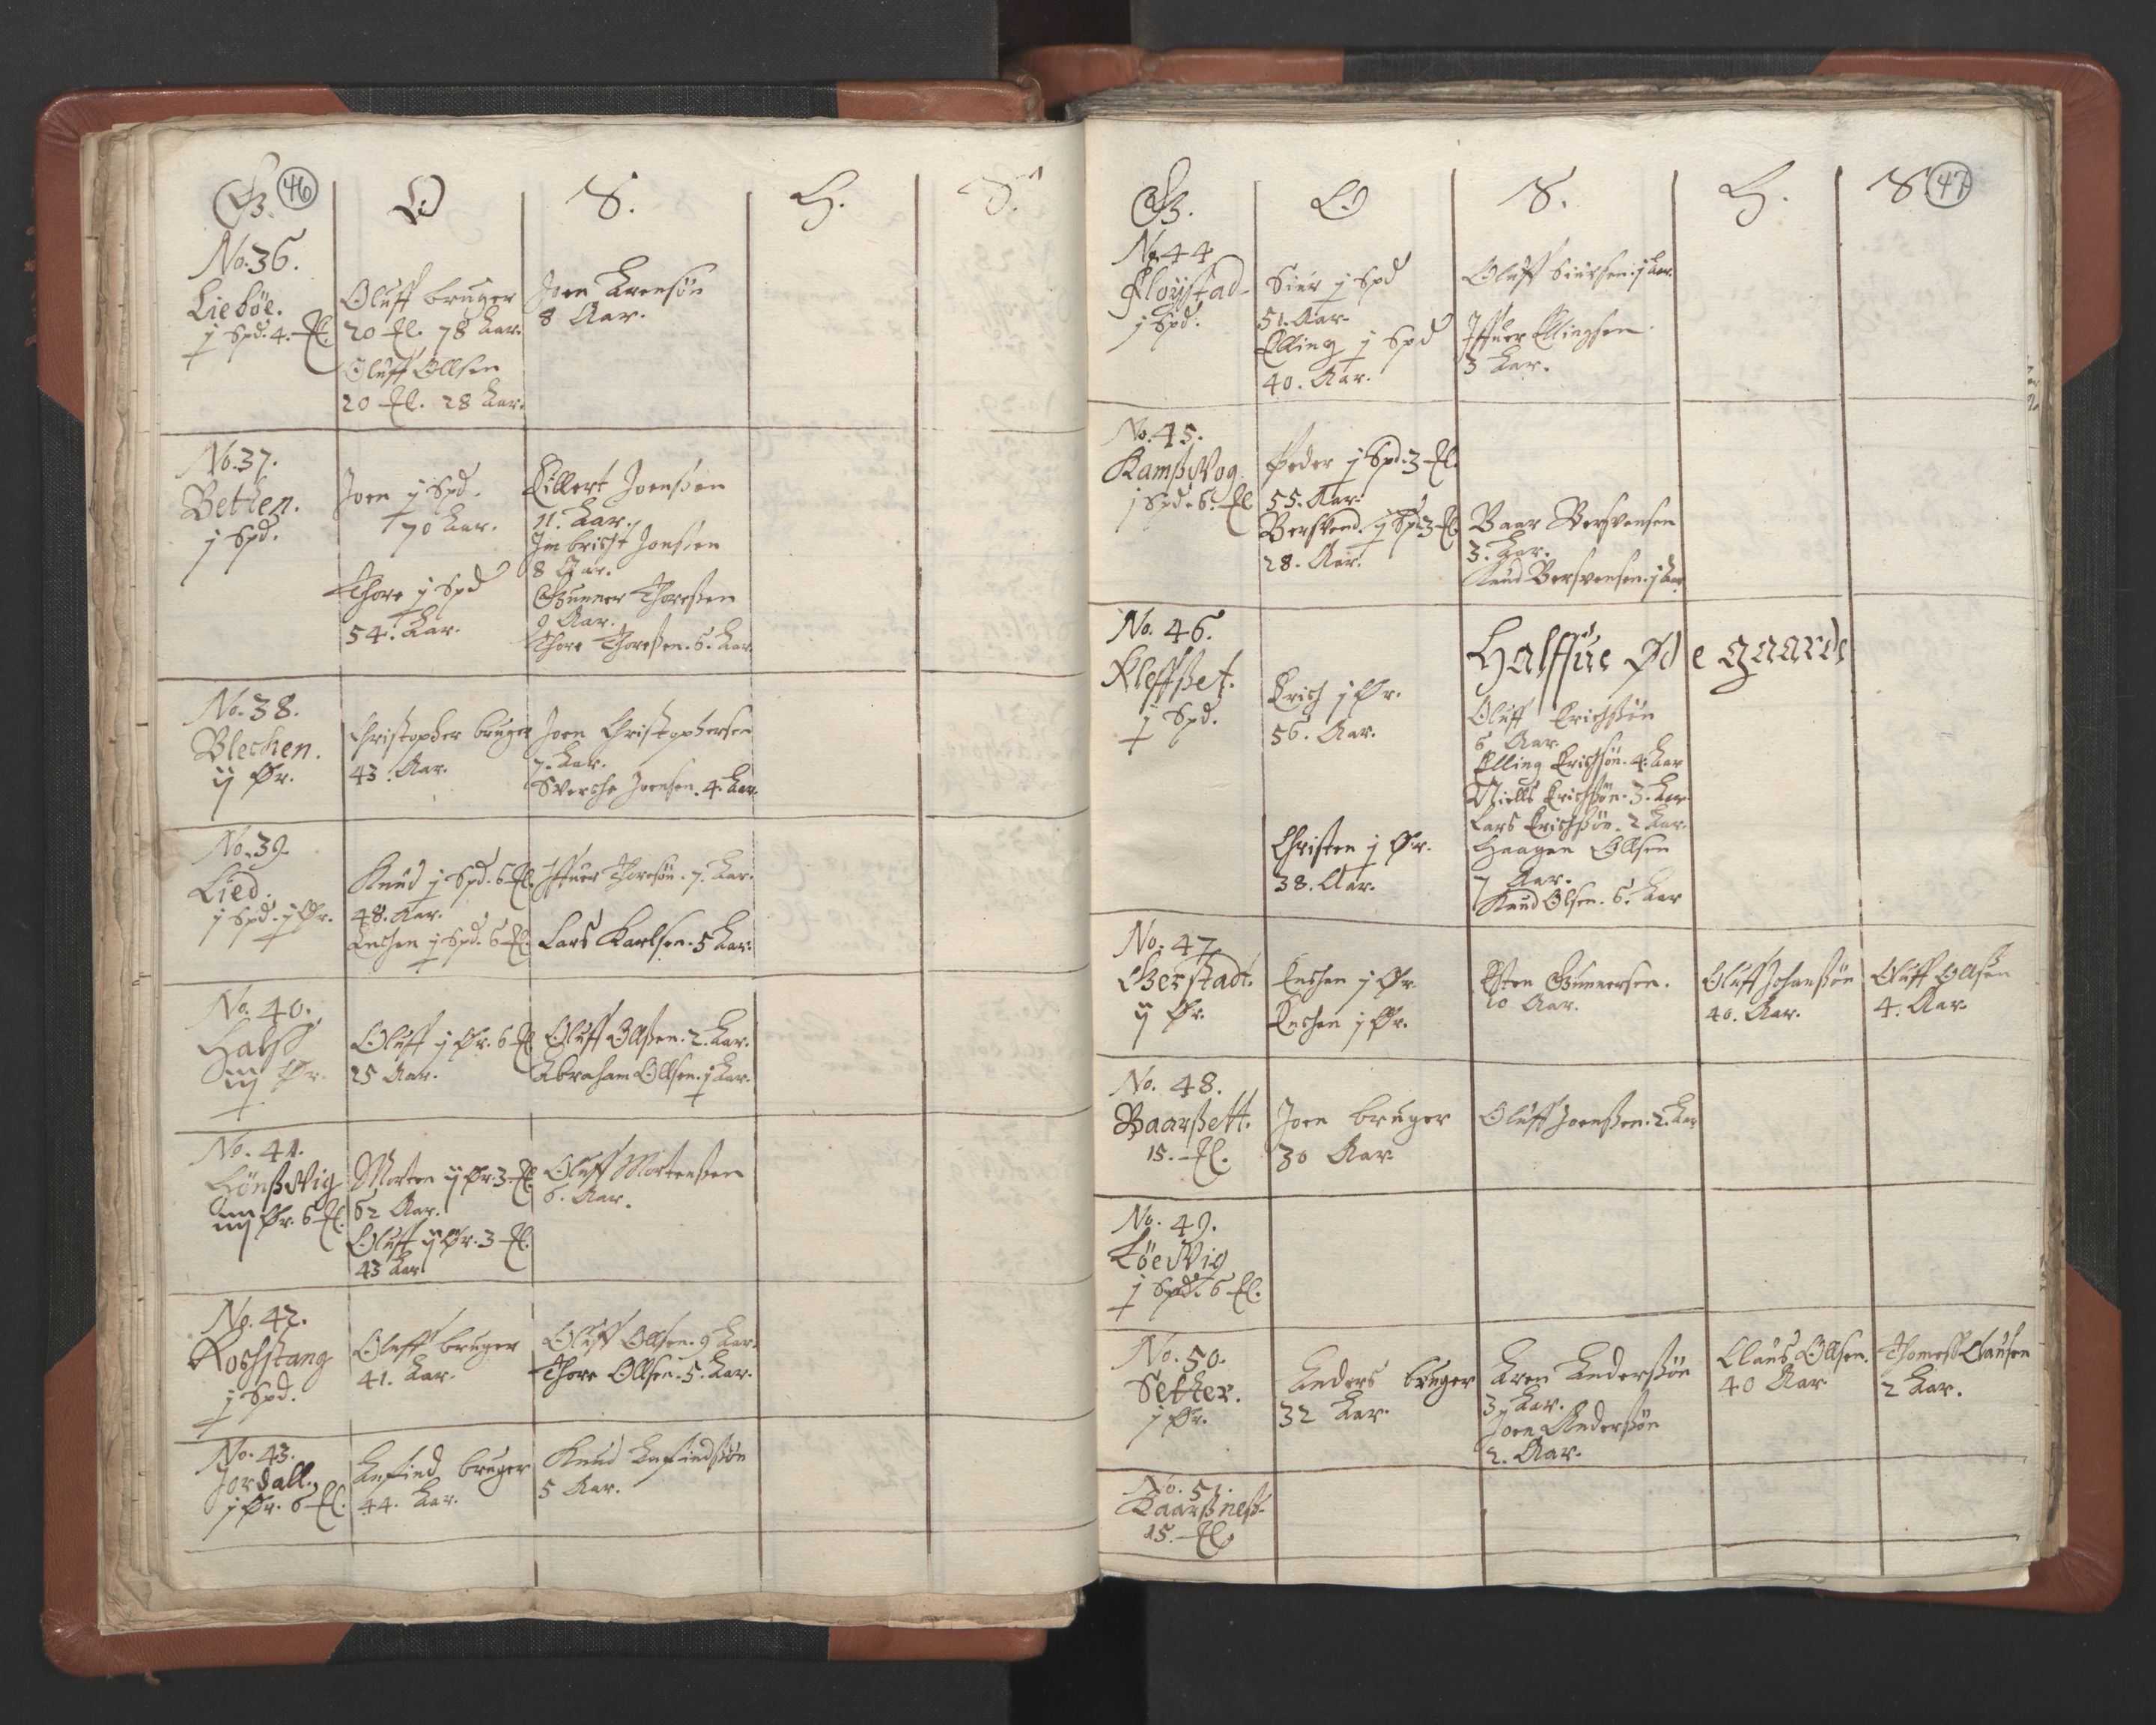 G. 46 O S. H. S.
No. 36.
Liebøe.
j Spd. 4. Ml.
Oluff bruger
20 Ml. 78 Aar.
Oluff Ollsen
20 Ml. 28 Aar.
Joen Arensøn
8 Aar.
No. 37.
Betten.
j Spd.
Joen j Spd.
70 Aar.
Thore j Spd
54. Aar.
Eillert Joensen
11. Aar.
Imbricht Jonsen
8 Aar.
Gunner Thoresen
9 Aar.
Thore Thoresen. 6. Aar
No. 38.
Blechen.
ij Ør.
Christopher bruger
43. Aar.
Joen Christophersen
7. Aar.
Sverche Joensen. 4. Aar.
No. 39.
Lied.
j Spd. j Ør.
Knud j Spd. 6 Ml.
48. Aar.
j Spd. 6 Ml.
Iffuer Thoresøn. 7. Aar.
Lars Karlsen. 5 Aar.
No. 40.
Halsß
iij Ør.
Oluff j Ør. 6 Ml
25 Aar.
Oluff Ollsen. 2. Aar.
Abraham Ollsen. j Aar.
No. 41.
Hønßvig
iiij Ør. 6 Ml.
Morten ij Ør. 3 Ml.
62 Aar.
Oluff ij Ør. 3 Ml.
43 Aar
Oluff Mortensen
6. Aar.
No. 42.
Rochstang
j Spd.
Oluff bruger
41. Aar.
Oluff Ollsen. 9 Aar.
Thore Ollsen. 5. Aar.
No. 43.
Jordall.
j Ør. 6 Ml.
Anfind bruger
44. Aar.
Knud Anfindsøn
5 Aar.
G. O S. H. S. 47
No. 44
Floystad
j Spd.
Siur j Spd
51. Aar.
Elling j Spd
40. Aar.
Oluff Siursen. j Aar.
Iffuer Ellingsen.
3 Aar.
No. 45.
Kamßvog.
j Spd. 6. Ml
Peder j Spd. 3 Ml.
55. Aar.
Bersvend. j Sp 3 Ml.
28. Aar.
Baar Bersvensen
3. Aar.
Knud Bersvensen. j Aar
No. 46.
Kleffset.
j Spd.
Erich j Ør.
56. Aar.
Christen j Ør.
38. Aar.
Halffue Øde gaarde
Oluff Erichsøn
6 Aar.
Elling Erichsøn. 4. Aar
Niells Erichsøn. 3. Aar
Lars Erichsøn. 2 Aar.
Haagen Ollsen
7 Aar.
Knud Olsen. 6. Aar
No. 47.
Gerstadt.
ij Ør.
Enchen j Ør.
Enchen j Ør.
Esten Gunnersen.
10 Aar.
Oluff Johansøn
40. Aar.
Oluff Ollsen
4. Aar.
No. 48.
Baarßett.
15. Ml.
Joen bruger
30 Aar
Oluff Joensen. 2. Aar
No. 49.
Løevig
j Spd. 6 Ml.
No. 50.
Setter.
j Ør.
Anders bruger
32 Aar.
Aren Andersøn
3 Aar.
Joen Andersøn
2. Aar.
Claus Ollsen.
40 Aar
Thomeß Clausen
2 Aar.
No. 51.
Baarßneß
15. Ml.